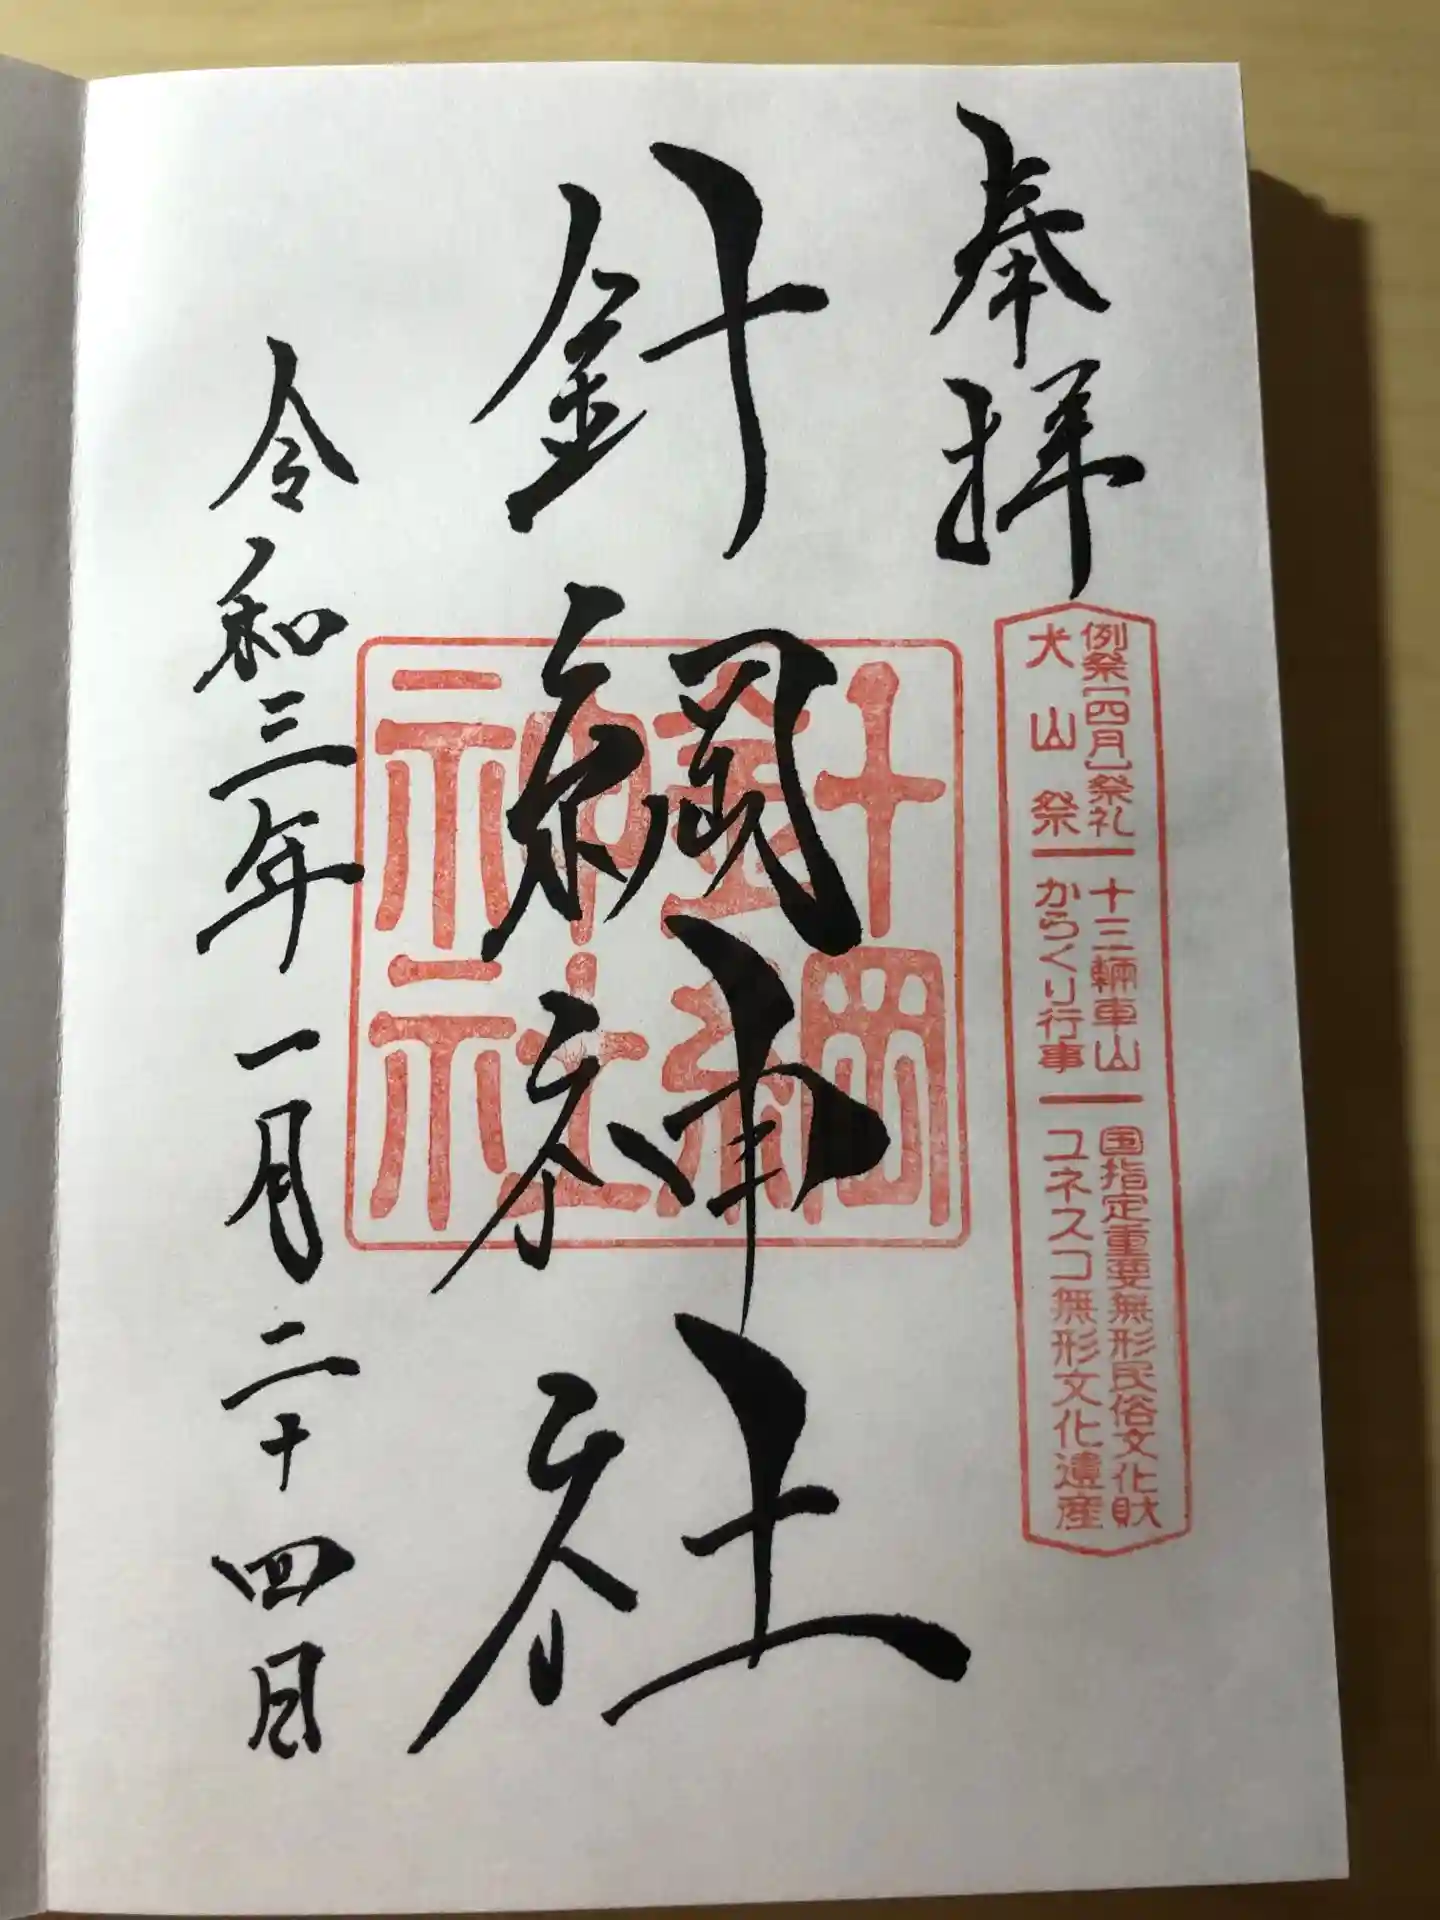 奉拝
例祭[四月]祭礼 十三輛車山 国指定重要無形民俗文化財
犬山祭 からくり行事 ユネスコ無形文化遺産
針綱神社
針綱神社
令和三年一月二十四日